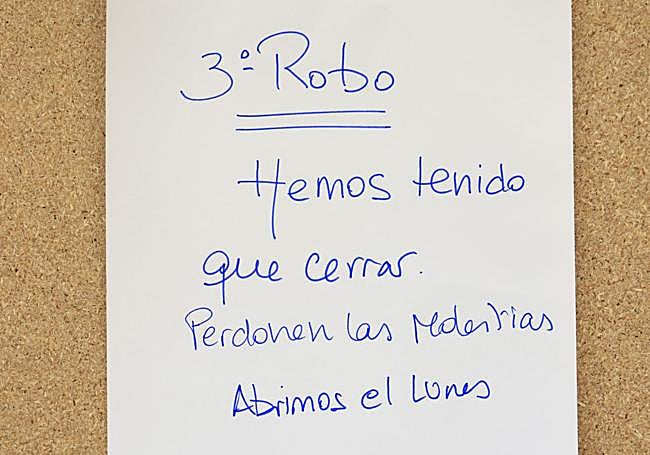 3º Robo
Hemos tenido
que cerrar.
Perdonen las molestias
Abrimos el Lunes